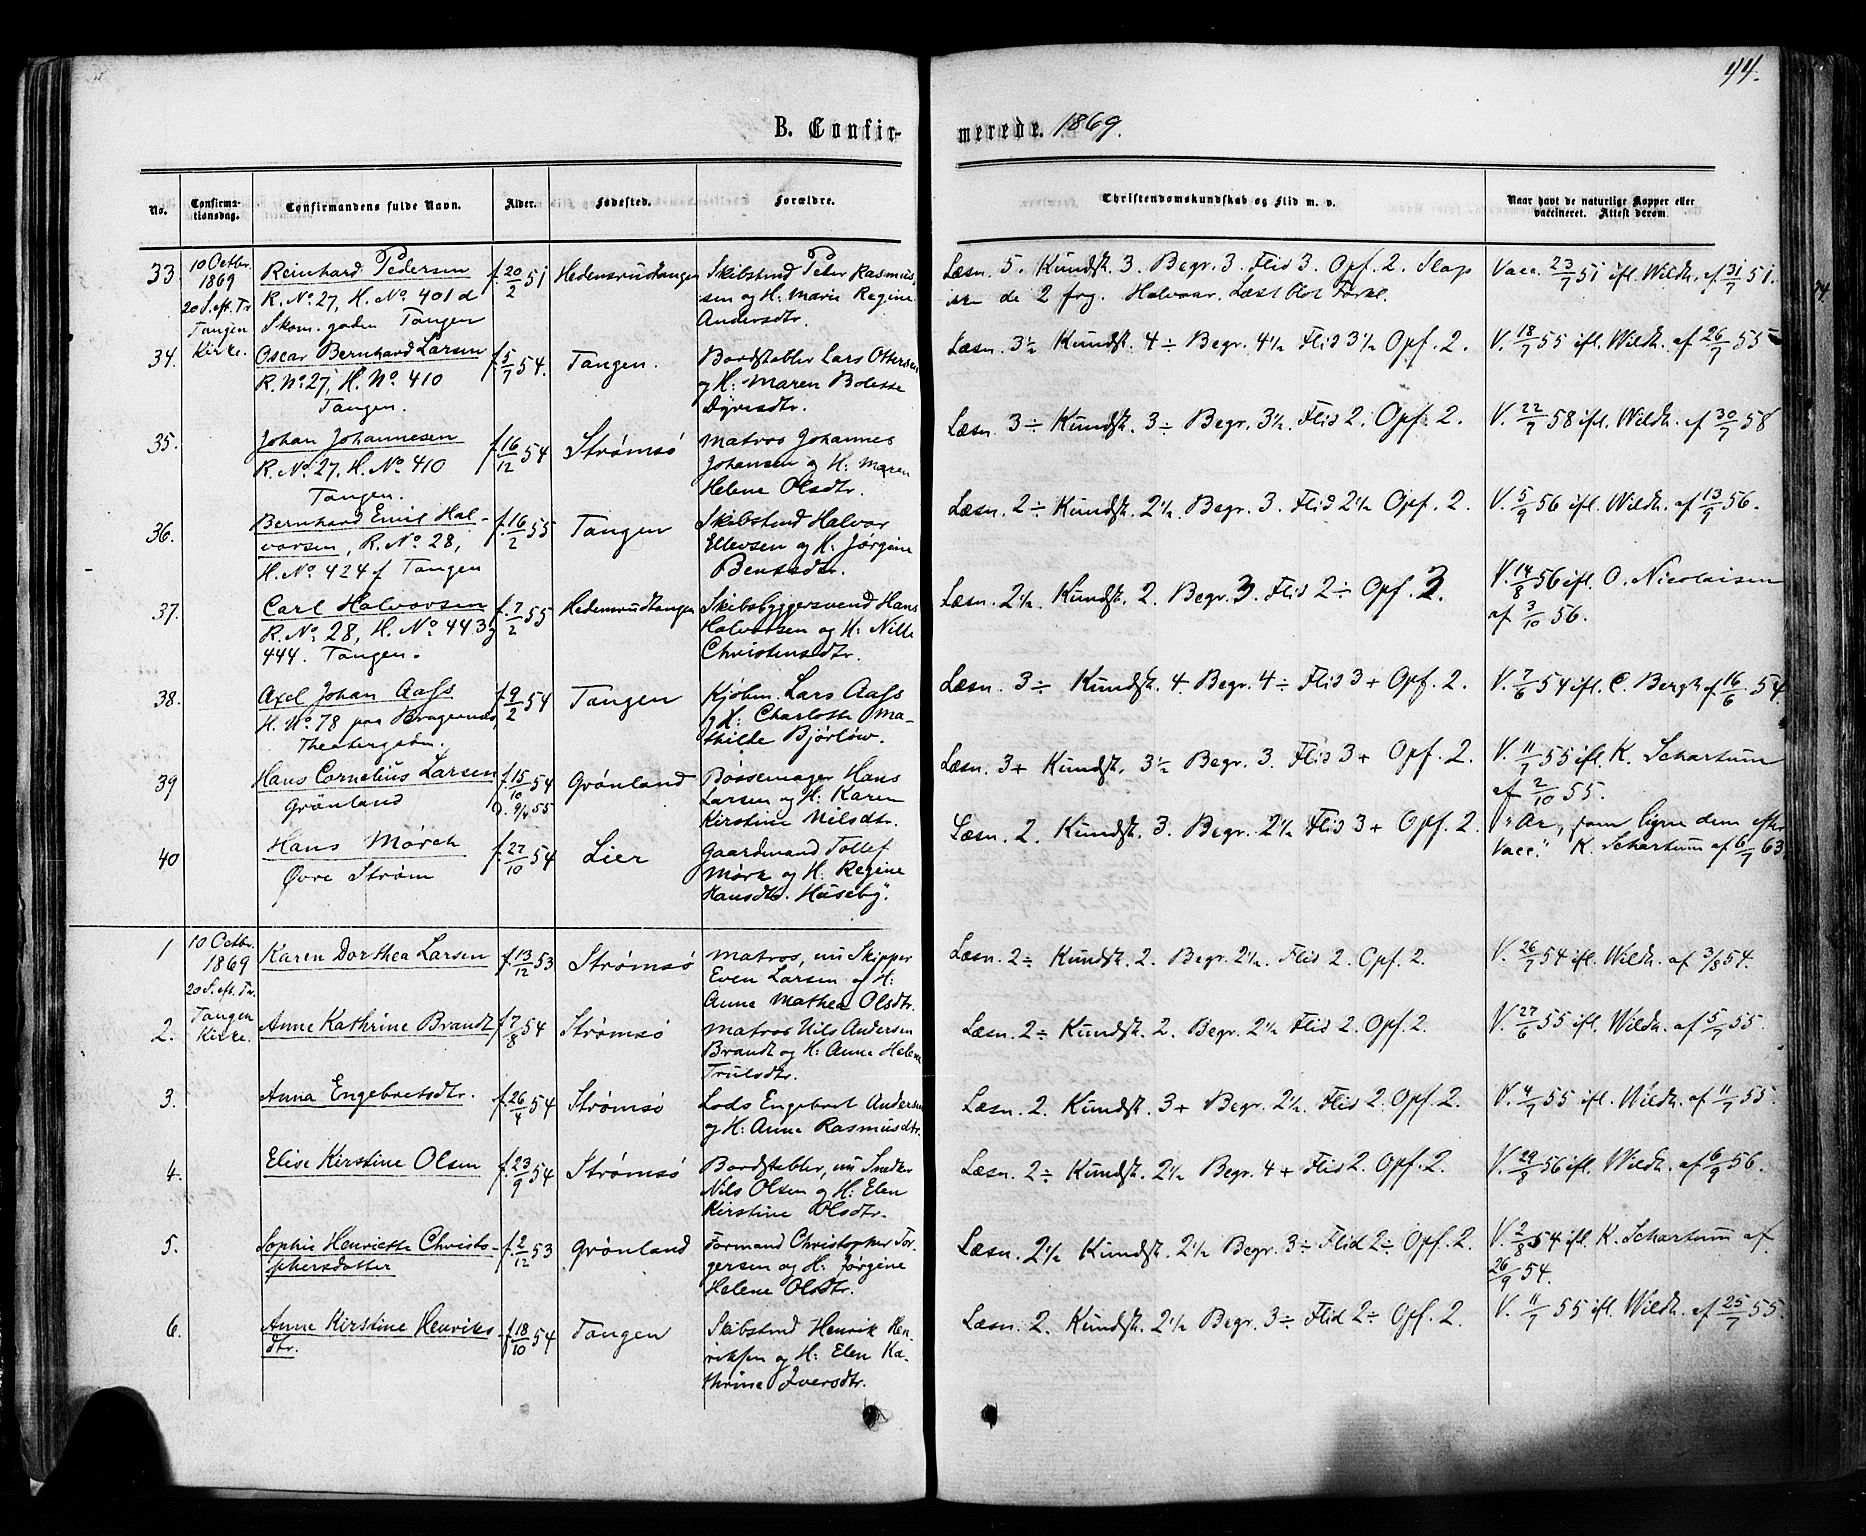 44.
B. Confirmerede. 1869.
No. Confirmationsdag. Confirmandens fulde Navn. Alder. Fødested. Forældre. Christendomskundskab og Flid m. v. Naar havt de naturlige Kopper eller vaccineret. Attest derom.
33. 10 Octbr. 1869 20 S. eft. Tr. Tangen Kirke.
Reinhard Pedersen
R. No 27, H. No 401 d
Skom. gaden Tangen
f. 20/2 51
Hedensrudtangen
Skibstmd Peder Rasmus-
sen og H: Marie Regine
Andersdtr.
Læsn. 5. Kundsk. 3. Begr. 3. Flid 3. Opf. 2.
Vacc. 23/7 51 ifl. Wildh. af 31/7 51.
34. Oscar Bernhard Larsen
R. No 27, H. No 410
Tangen.
f. 5/7 54.
Tangen.
Bordstabler Lars Ottersen
og H: Maren Bolette
Dyresdtr.
Læsn. 3½ Kundsk. 4÷ Begr. 4½ Flid 3½ Opf. 2.
V. 18/7 55 ifl. Wildh. af 26/7 55
35. Johan Johannesen
R. No 27, H. No 410
Tangen.
f. 16/12 54
Strømsö
Matros Johannes
Johansen og H: Maren
Helene Olsdtr.
Læsn. 3÷ Kundsk. 3÷ Begr. 3½ Flid 2. Opf. 2.
V. 22/7 58 ifl. Wildh. af 30/7 58
36. Bernhard Emil Hal-
vorsen, R. No 28,
H. No 424 f Tangen
f. 16/2 55
Tangen
Skibstmd Halvor
Ellevsen og H: Jørgine
Bentsdtr.
Læsn. 2÷ Kundsk. 2½ Begr. 3. Flid 2½ Opf. 2.
V. 5/9 56 ifl. Wildh. af 13/9 56.
37. Carl Halvorsen
R. No 28, H. No 443 og
444. Tangen.
f. 7/2 55
Hedensrudtangen
Skibsbyggersvend Hans
Halvorsen og H: Nille
Christensdtr.
Læsn. 2½. Kundsk. 2. Begr. 3. Flid 2÷ Opf. 2.
V. 14/8 56 ifl. O. Nicolaisen
af 3/10 56.
38. Axel Johan Aass
H. No 78 paa Bragernæs,
Theatergadn.
f. 9/2 54
Tangen
Kjøbm. Lars Aass
og H: Charlotte Ma-
thilde Bjørlöw.
Læsn. 3÷ Kundsk. 4. Begr. 4÷ Flid 3+ Opf. 2.
V. 7/6 54 ifl. C. Bergh af 16/6 54.
39 Hans Cornelius Larsen
Grönland
f. 15/10 54
D. 9/4 55
Grønland
Bøssemager Hans
Larsen og H: Karen
Kirstine Nilsdtr.
Læsn. 3+ Kundsk. 3½ Begr. 3. Flid 3+ Opf. 2.
V. 11/7 55 ifl. K. Schartum
af 2/10 55.
40 Hans Mørch
Øvre Strøm
f. 27/10 54
Lier
Gaardmand Tollef
Mørk og H: Regine
Hansdtr. Huseby.
Læsn. 2. Kundsk. 3. Begr. 2½ Flid 3+ Opf. 2.
"Ar, som ligne dem efter
Vacc." K. Schartum af 6/7 63
1 10 Octbr. 1869 20 S. eft. Tr. Tangen Kirke.
Karen Dorthea Larsen
f. 13/12 53
Strømsö
Matros, nu Skipper
Even Larsen og H:
Anne Mathea Olsdtr.
Læsn. 2÷ Kundsk. 2. Begr. 2½. Flid 2. Opf. 2.
V. 26/7 54 ifl. Wildh. af 3/8 54.
2. Anne Kathrine Brandt
f. 7/8 54
Strømsö
Matros Nils Andersen
Brandt og H: Anne Helene
Trulsdtr.
Læsn. 2÷ Kundsk. 2. Begr. 2½ Flid 2. Opf. 2.
V. 27/6 55 ifl. Wildh. af 5/7 55.
3. Anna Engebretsdtr.
f. 26/7 54
Strømsö
Lods Engebret Andersen
og H: Anne Rasmusdtr.
Læsn. 2. Kundsk. 3+ Begr. 2½. Flid 2. Opf. 2.
V. 4/7 55 ifl. Wildh. af 11/7 55.
4. Elise Kirstine Olsen
f. 23/9 54
Strømsö
Bordstabler, nu Snedker
Nils Olsen og H: Elen
Kirstine Olsdtr.
Læsn. 2÷ Kundsk. 2½ Begr. 4+ Flid 2. Opf. 2.
V. 29/8 56 ifl. Wildh. af 6/9 56.
5. Sophie Henriette Christo-
phersdatter
f. 2/12 53
Grønland
Formand Christopher Tor-
gersen og H: Jørgine
Helene Olsdtr.
Læsn. 2½ Kundsk. 2½ Begr. 3÷ Flid 2÷ Opf. 2.
V. 2/8 54 ifl. K. Schartum af
26/9 54.
6. Anne Kirstine Henriks-
dtr.
f. 18/10 54
Tangen
Skibstmd Henrik Hen-
riksen og H: Elen Ka-
thrine Iversdtr.
Læsn. 2. Kundsk. 2½ Begr. 3÷ Flid 2÷ Opf. 2.
V. 11/7 55 ifl. Wildh. af 25/7 55.